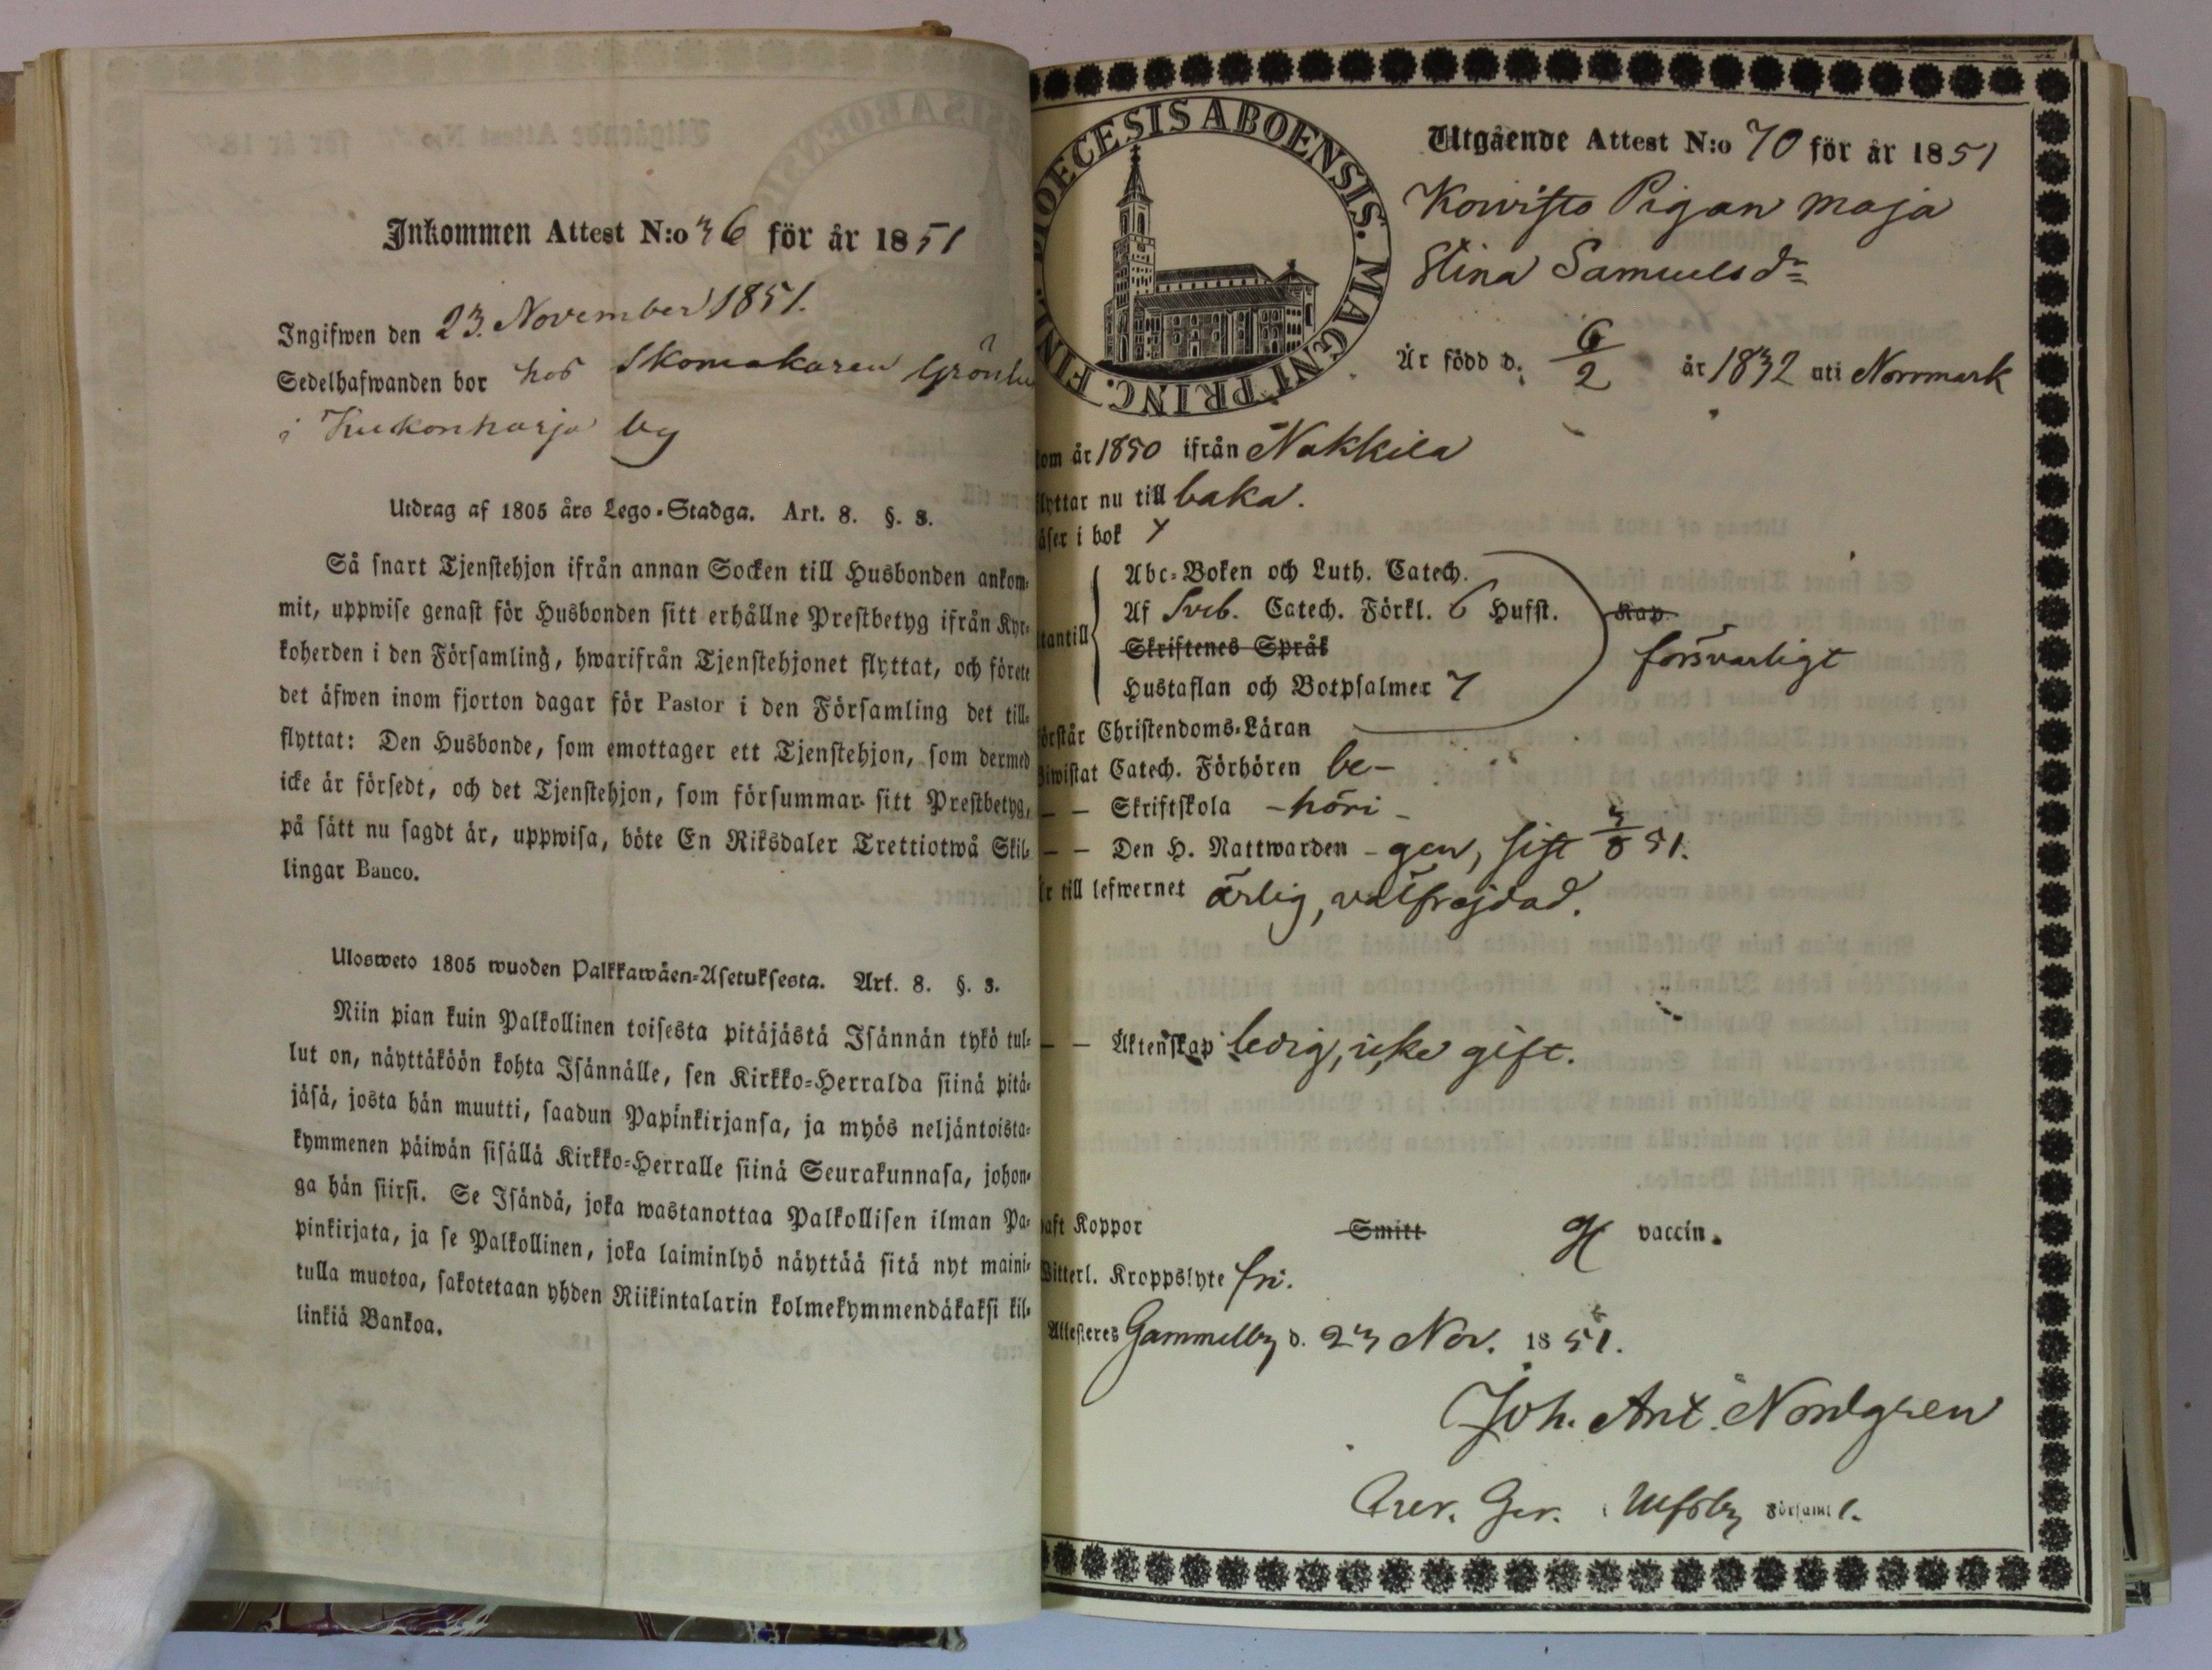 Inkommen Attest N:o 36 för år 1851
Ingifwen den 23. November 1851.
Sedelhafwanden bor hos Skomakaren
i Kukonharja by
Utdrag af 1805 års Lego-Stadga. Art. 8. §. 3.
Så snart Tjenstehjon ifrån annan Socken till Husbonden ankom-
mit, uppwise genast för Husbonden sitt erhållne Prestbetyg ifrån Kyr-
koherden i den Församling, hwarifrån Tjenstehjonet flyttat, och förete
det äfwen inom fjorton dagar för Pastor i den Församling det till-
flyttat: Den Husbonde, som emottager ett Tjenstehjon, som dermed
icke är försedt, och det Tjenstehjon, som försummar sitt Prestbetyg,
på sätt nu sagdt är, uppwisa, böte En Riksdaler Trettiotwå Skil-
lingar Banco.
Ulosweto 1805 wuoden Palkkawäen-Asetuksesta. Art. 8. §. 3.
Niin pian kuin Palkollinen toisesta pitäjästä Isännän tykö tul-
lut on, näyttäköön kohta Isännälle, sen Kirkko-Herralda siinä pitä-
jäsä, josta hän muutti, saadun Papinkirjansa, ja myös neljäntoista-
kymmenen päiwän sisällä Kirkko-Herralle siinä Seurakunnasa, johon-
ga hän siirsi. Se Isändä, joka wastanottaa Palkollisen ilman Pa-
pinkirjata, ja se Palkollinen, joka laiminlyö näyttää sitä nyt maini-
tulla muotoa, sakotetaan yhden Riikintalarin kolmekymmendäkaksi kil-
linkiä Bankoa.
DIOECESIS ABOENSIS. MAGNI PRINC. FINL.
Utgående Attest N:o 70 för år 1851
Kowisto Pigan Maja
Stina Samuelsdr
Är född d. 6/2 år 1832 uti Norrmark
kom år 1850 ifrån Nakkila
flyttar nu till baka.
läser i bok
Abc-Boken och Luth. Catech.
Af Sveb. Catech. Förkl. 6 Hufst. Kap.
utantill Skriftenes Språk försvarligt
Hustaflan och Botpsalmer 7
förstår Christendoms-Läran
Biwistat Catech. Förhören be-
— — Skriftskola -höri-
— — Den H. Nattwarden -gen, sist 3/8 51.
Är till lefwernet ärlig, välfrejdad.
— — Äktenskap ledig, icke gift.
haft Koppor Smitt vaccin.
Witterl. Kroppslyte fri.
Attesteres Gammelby d. 23 Nov. 1851.
Joh. Ant. Nordgren
i Ulfsby Församl.